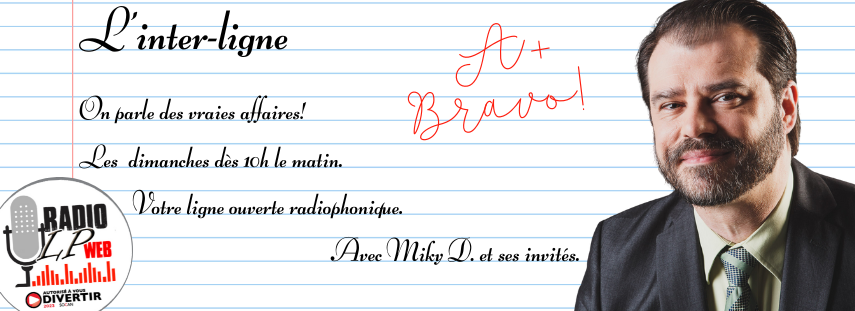 L'inter-ligne
A+
Bravo!
On parle des vraies affaires!
Les dimanches dès 10h le matin.
Votre ligne ouverte radiophonique.
Avec Miky D. et ses invités.
RADIO
LP WEB
AUTORISÉ À VOUS
DIVERTIR
2023 SOCAN